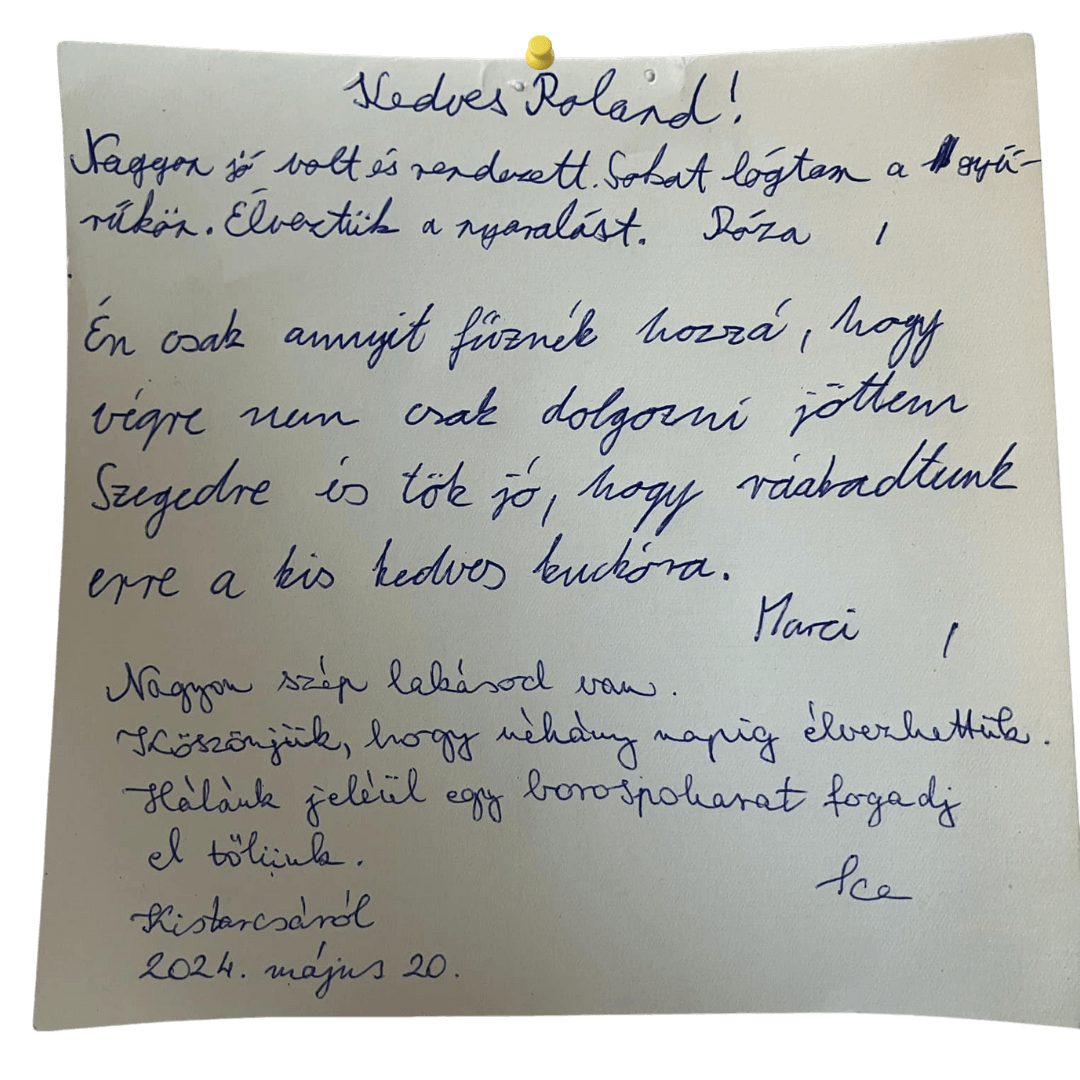 Kedves Roland!
Nagyon jó volt és rendezett. Sokat lógtam a gyű-
rűkön. Élveztük a nyaralást. Róza
Én csak annyit fűznék hozzá, hogy
végre nem csak dolgozni jöttem
Szegedre és tök jó, hogy ráakadtunk
erre a kis kedves kuckóra.
Marci
Nagyon szép lakásod van.
Köszönjük, hogy néhány napig élvezhettük.
Hálánk jeléül egy borospoharat fogadj
el tőlünk.
Ice
Kistarcsáról
2024. május 20.